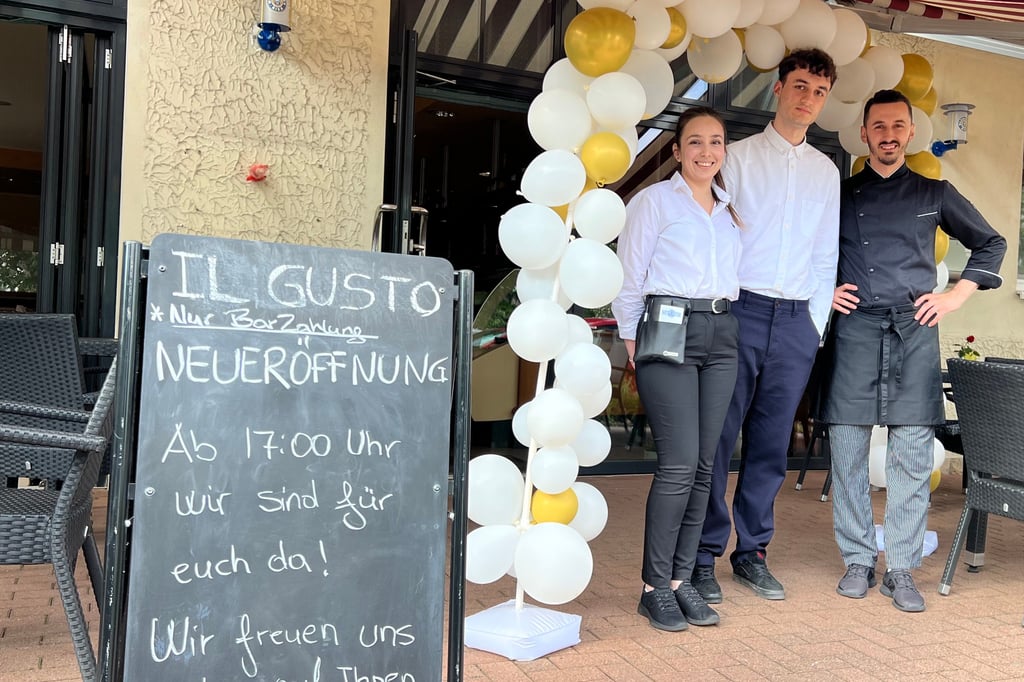 IL GUSTO
* Nur Barzahlung
NEUERÖFFNUNG
Ab 17:00 Uhr
Wir sind für
euch da!
Wir freuen uns
auf Ihnen